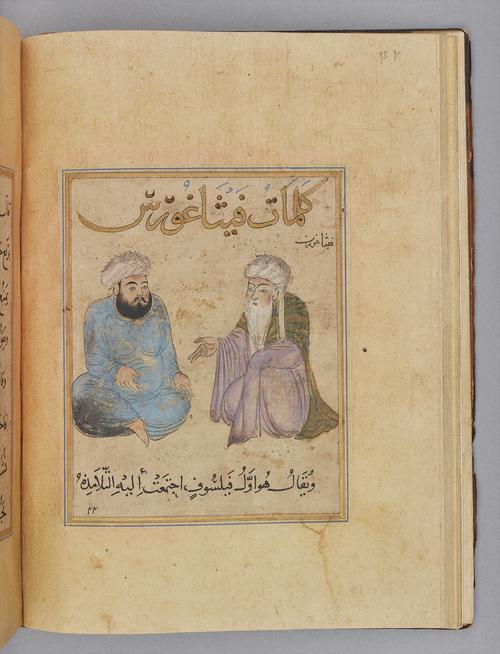 كَلِمَاتُ فِيثَاغُوْرسْ
فيثاغورس
وَيُقَالُ هُوَ اوَّلُ فَيلسُوفٍ اجتمَعَتْ إليهِ التَّلَامذِه